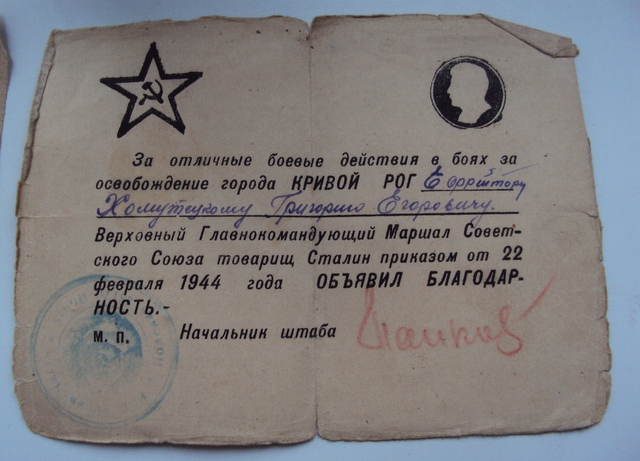 За отличные боевые действия в боях за
освобождение города КРИВОЙ РОГ Ефрейтору
Хомутецкому Григорию Егоровичу.
Верховный Главнокомандующий Маршал Совет-
ского Союза товарищ Сталин приказом от 22
февраля 1944 года ОБЪЯВИЛ БЛАГОДАР-
НОСТЬ.-
М. П. Начальник штаба